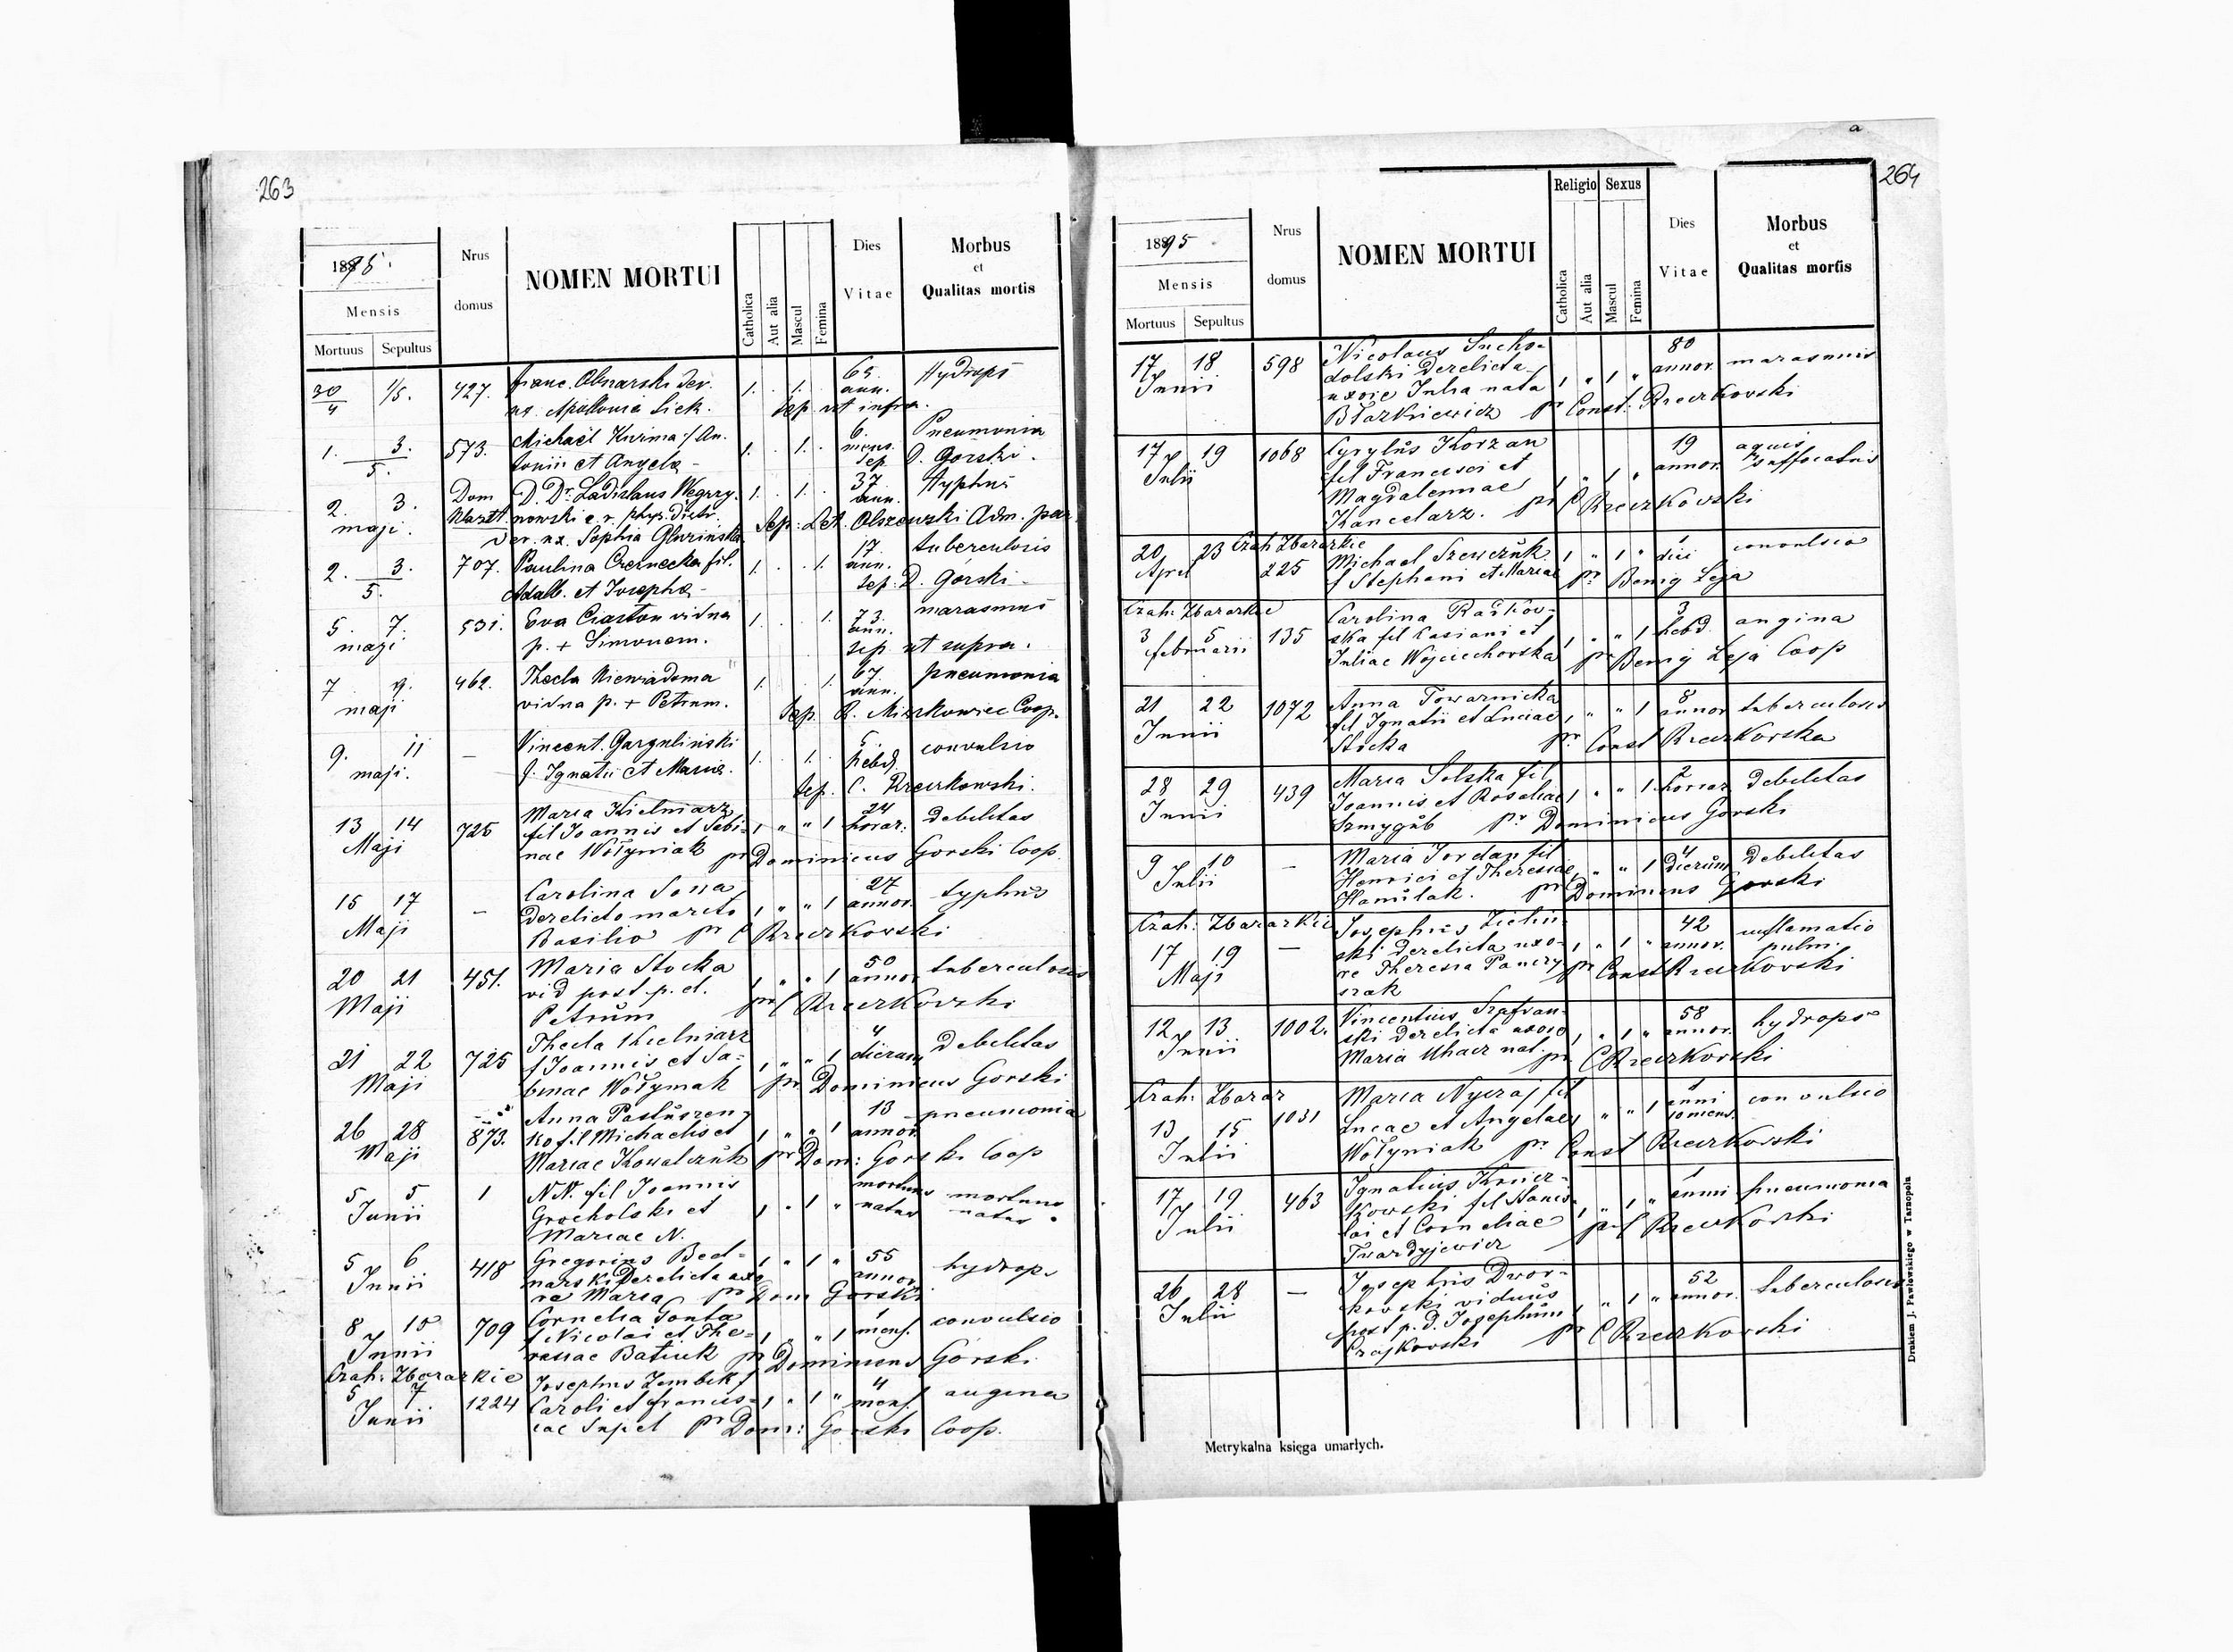 263
1895.
Mensis
Mortuus Sepultus
Nrus
domus
NOMEN MORTUI
Catholica
Aut alia
Mascul
Femina
Dies
Vitae
Morbus
et
Qualitas mortis
30/4 1/5. 427. Franc. Olnarski der. 1. 1. 65. ann. Hydrops
ux. Apollonia Liek. Sep. ut infra.
1. 3. 573. Michaël Kuzma f. An. 1. 1. 6. mens. Pneumonia
5. tonii et Angela - Sep. D. Gorski.
2. 3. Dom D. Dr. Ladislaus Węgrzy- 1. 1. 37 ann. Typhus
maji. nowski c. r. phys. distr. Sep: Let. Olszewski Adm. par.
der. ux. Sophia
2. 3. 707. Paulina Czernecka fil. 1. 1. 17. ann. tuberculosis
5. Adalb. et Josepha - Sep. D. Gorski -
5. 7. 531. Eva Ciaston vidua 1. 1. 73. ann. marasmus
maji p. + Simonem. Sep. ut supra.
7 9. 462. Thecla Niewiadoma 1. 1. 67. ann. pneumonia
maji vidua p. + Petrum. Sep. R. Miszkowiec Coop.
9. 11 - Vincent. Gargulinski 1. 1. 5. hebd. convulsio
maji. f. Ignatii et Maria. Sep. C. Rzeczkowski.
13 14 725 Maria Kielmarz
Maji fil Joannis et Sabi- 1 " " 1 24 horar: debilitas
nae Wołyniak pr Dominicus Gorski Coop
15 17 - Carolina Sowa
Maji derelicto marito 1 " " 1 27 annor. typhus
Basilio pr C Rzeczkowski
20 21 451. Maria Stocka 1 " " 1 50 annor tuberculosis
Maji vid post p. d.
Petrum pr C Rzeczkowski
21 22 725 Thecla Kielmarz
Maji f Joannis et Sa- 1 " " 1 4 dierum debilitas
binae Wołyniak pr Dominicus Gorski
26 28 873. Anna Pastuszen-
Maji ko fil Michaelis et 1 " " 1 13 annor. pneumonia
Mariae Kowalczuk pr Dom: Gorski Coop
5 5 1 NN. fil Joannis
Junii Grocholski et 1 " 1 " mortuus natus mortuus natus
Mariae N.
5 6 418 Gregorius Bed- 1 " 1 " 55 annor hydrops
Junii narski derelicta uxo-
re Maria pr Dom Gorski
8 10 709 Cornelia Gonta
Junii f Nicolai et The- 1 " " 1 1 mens. convulsio
resiae Batiuk pr Dominicus Gorski
Czah: Zbarazkie
5 7 1224 Josephus Zembik f
Junii Caroli et Francis- 1 " 1 " 4 mens. angina
cae Supel pr Dom: Gorski Coop.
264
a
1895.
Mensis
Mortuus Sepultus
Nrus
domus
NOMEN MORTUI
Religio Sexus
Catholica
Aut alia
Mascul
Femina
Dies
Vitae
Morbus
et
Qualitas mortis
17 18 598 Nicolaus Sucho-
Junii dolski derelicta 1 " 1 " 80 annor. marasmus
uxore Julia nata
Błazkiewicz pr Const: Rzeczkowski
17 19 1068 Cyrylus Korzan
Julii fil Francisci et 1 " 1 " 19 annor. aquis suffocatus
Magdalennae
Kancelarz. pr C Rzeczkowski
Czah Zbarazkie
20 23 225 Michael Szewczuk 1 " 1 " 1 diei convulsio
April f Stephani et Mariae pr Benig Leja
Czah: Zbarazkie
3 5 135 Carolina Raškov-
februarii ska fil Casiani et 1 " " 1 3 hebd. angina
Juliae Wojciechovska pr Benig Leja Coop
21 22 1072 Anna Towarnicka
Junii fil Ignatii et Luciae 1 " " 1 8 annor tuberculosis
Stocka pr Const Rzeczkovska
28 29 439 Maria Solska fil
Junii Joannis et Rosaliae 1 " " 1 2 horar debilitas
Szmygub pr Dominicus Gorski
9 10 - Maria Jordan fil
Julii Henrici et Theresiae 1 " " 1 4 dierum debilitas
Hamulak. pr Dominicus Gorski
Czah: Zbarazkie
17 19 - Josephus Zielin-
Maji ski derelicta uxo- 1 " 1 " 42 annor. inflamatio pulm.
re Theresia Panczy- pr Const Rzeczkovski
szak
12 13 1002. Vincentius Szafran-
Junii ski derelicta uxore 1 " 1 " 58 annor. hydrops
Maria Uhacz nat. pr C Rzeczkovski
Czah: Zbaraz
13 15 1031 Maria Nyczaj fil
Julii Lucae et Angelae 1 " " 1 1 anni 10 mens. convulsio
Wołyniak pr Const Rzeczkovski
17 19 463 Ignatius Krucz-
Julii kowski fil Stanis- 1 " 1 " 1 anni pneumonia
lai et Corneliae
Twardyjewicz pr C Rzeczkovski
26 28 - Josephus Dwor-
Julii kowski viduus 1 " 1 " 52 annor. tuberculosis
post p. d. Josephum
Czajkovski pr C Rzeczkovski
Metrykalna księga umarłych.
Drukiem J. Pawłowskiego w Tarnopolu